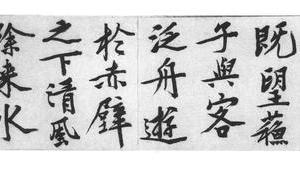 既望蘓
子與客
泛舟遊
於赤壁
之下清風
徐来水